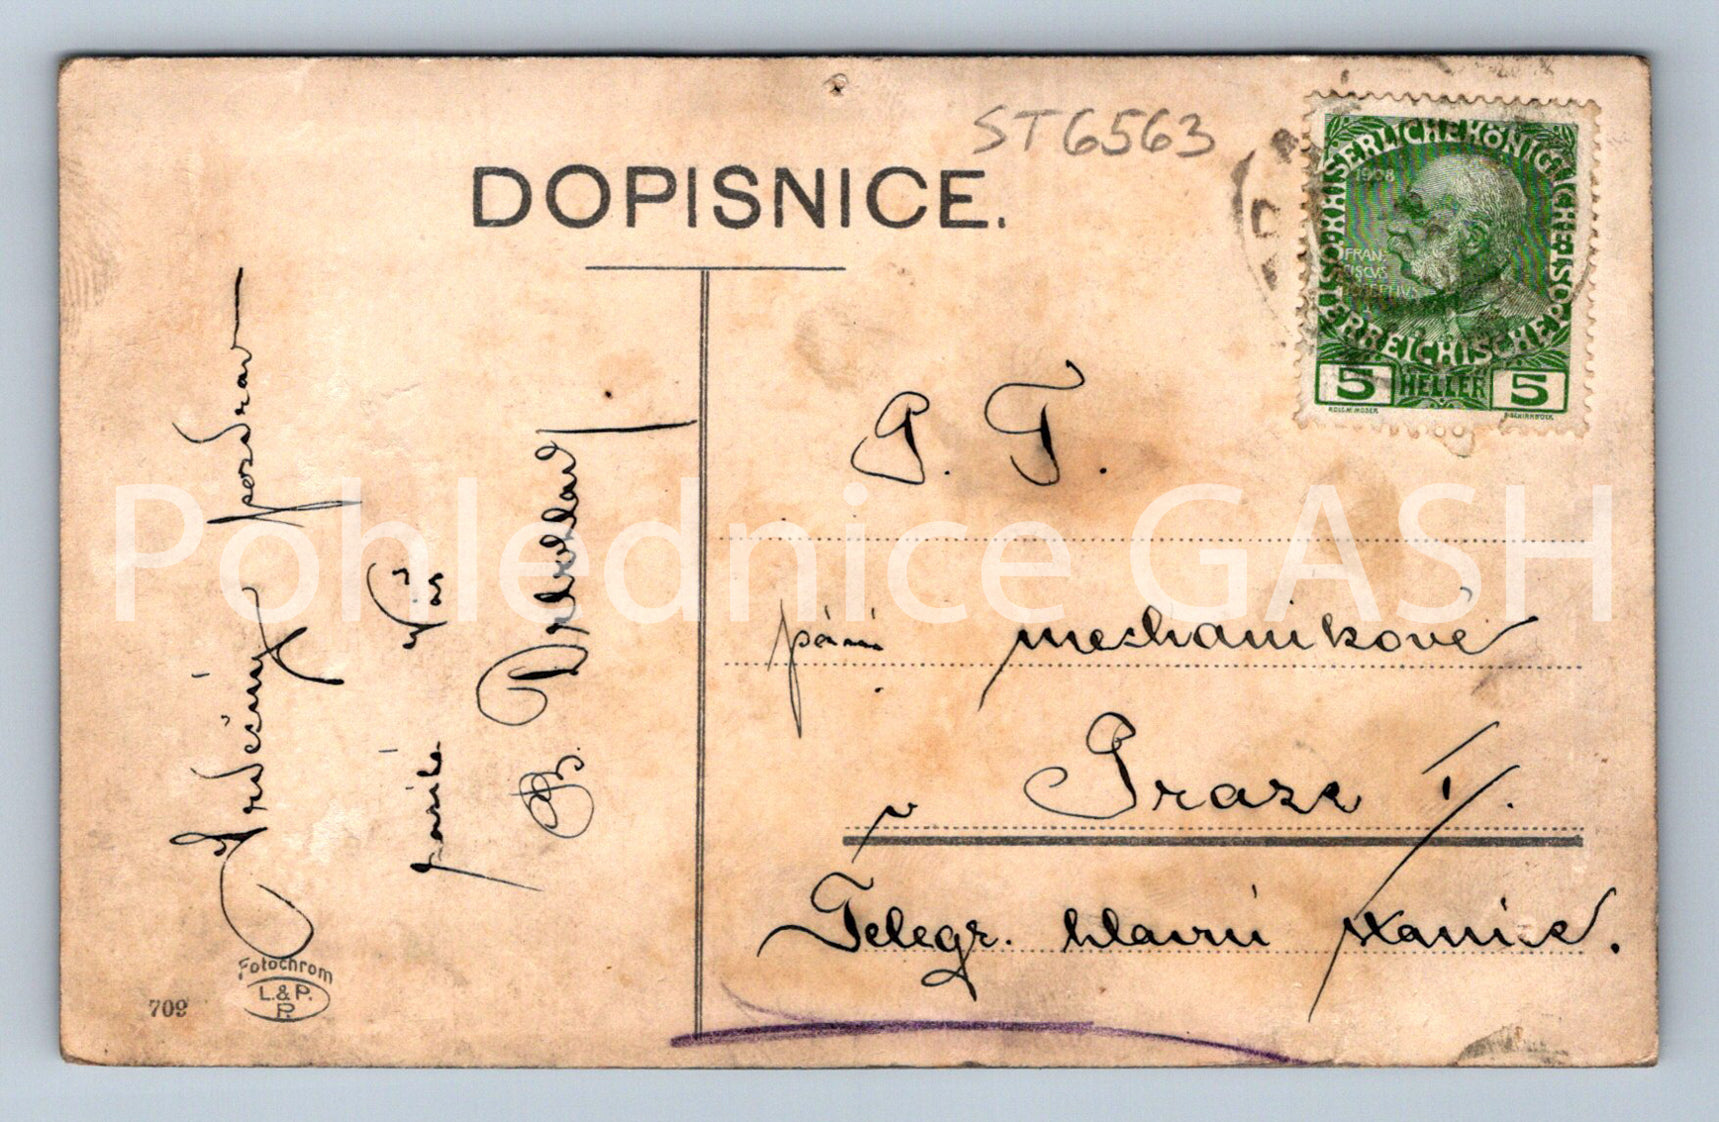 ST6563
DOPISNICE.
KAISERLICHE KÖNIGLICHE ÖSTERREICHISCHE POST
1908
FRAN-
CISCVS
IOSEPHVS
5 HELLER 5
Srdečný pozdrav
Vás
posílá
B.
P. T.
páni mechanikové
v Praze I.
Telegr. hlavní stanice.
Fotochrom
L.&P.
P.
709
Pohlednice GASH